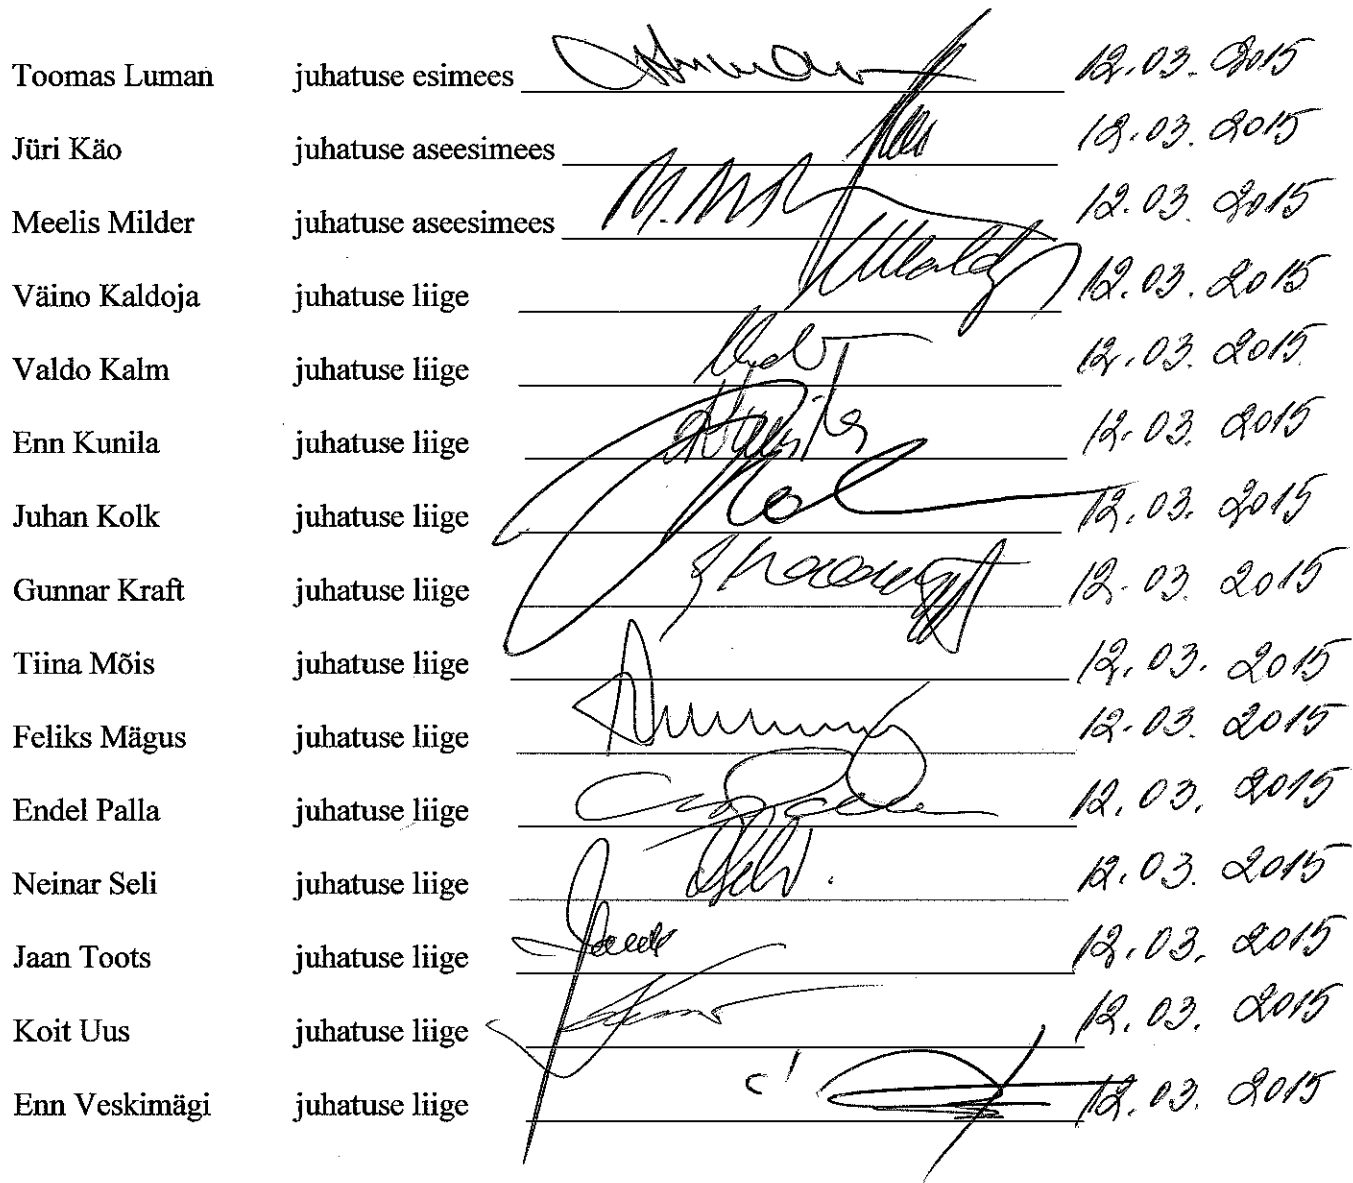 Toomas Luman juhatuse esimees 12.03.2015
Jüri Käo juhatuse aseesimees 12.03.2015
Meelis Milder juhatuse aseesimees 12.03.2015
Väino Kaldoja juhatuse liige 12.03.2015
Valdo Kalm juhatuse liige 12.03.2015
Enn Kunila juhatuse liige 12.03.2015
Juhan Kolk juhatuse liige 12.03.2015
Gunnar Kraft juhatuse liige 12.03.2015
Tiina Mõis juhatuse liige 12.03.2015
Feliks Mägus juhatuse liige 12.03.2015
Endel Palla juhatuse liige 12.03.2015
Neinar Seli juhatuse liige 12.03.2015
Jaan Toots juhatuse liige 12.03.2015
Koit Uus juhatuse liige 12.03.2015
Enn Veskimägi juhatuse liige 12.03.2015